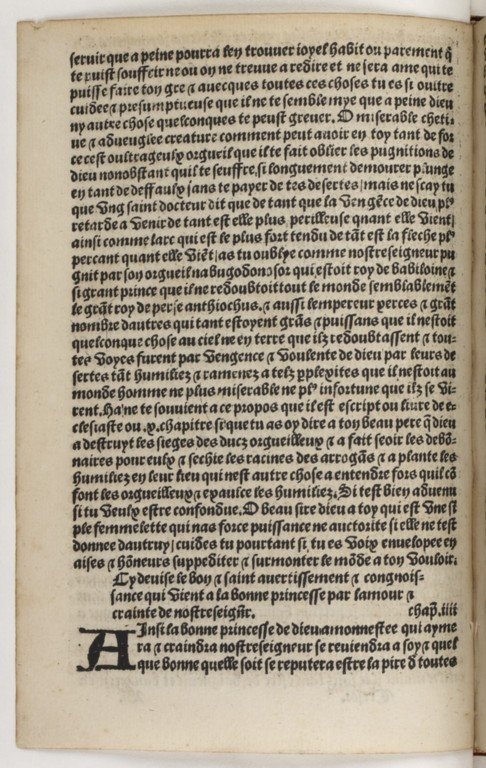 seruir que a peine pourra len trouuer ioyel habit ou parement q̃
te puist souffeir ne ou on ne treuue a redire et ne sera ame qui te
puisse faire ton gre ⁊ auecques toutes ces choses tu es si oultre
cuidee ⁊ presumptueuse que il ne te semble mye que a peine dieu
ny autre chose quelconques te peust greuer. O miserable cheti⸗
ue ⁊ aduenglee creature comment peut auoir en toy tant de for
ce cest oultrageulx orgueil que il te fait oblier les pugnitions de
dieu nonobstant quil te seuffre si longuement demourer plunge
en tant de deffaulx sans te payer de tes desertes/mais ne scay tu
que vng saint docteur dit que de tant que la vengẽce de dieu plꝰ
retarde a venir de tant est elle plus perilleuse quant elle vient/
ainsi comme larc qui est le plus fort tendu de tãt est la fleche plꝰ
percant quant elle viẽt/as tu oublye comme nostreseigneur pu
gnit par son orgueil nabugodonosor qui estoit roy de babiloine ⁊
si grant prince que il ne redoubtoit tout le monde semblablemẽt
le grãt roy de perse anthiochus. ⁊ aussi lempereur xerces ⁊ grãt
nombre dautres qui tant estoyent grãs ⁊ puissans que il nestoit
quelconque chose au ciel ne en terre que ilz redoubtassent ⁊ tou⸗
tes voyes furent par vengence ⁊ voulente de dieu par leurs de
sertes tãt humiliez ⁊ ramenez a telz pplexites que il nestoit au
monde homme ne plus miserable ne plꝰ infortune que ilz se vi⸗
rent. Ha/ne te souuient a ce propos que il est escript ou liure de e⸗
clesiaste ou .x. chapitre si que tu as oy dire a ton beau pere q̃ dieu
a destruyt les sieges des ducz orgueilleux ⁊ a fait seoir les debõ⸗
naires pour eulx ⁊ sechie les racines des arrogãs ⁊ a plante les
humiliez en leur lieu qui nest autre chose a entendre fors quil cõ
font les orgueilleux ⁊ exaulce les humiliez. Si test bien aduenu
si tu veulx estre confondue. O beau sire dieu a toy qui est vne si
ple femmelette qui nas force puissance ne auctorite si elle ne test
donnee dautruy/cuides tu pourtant si tu es voix enuelopee en
aises ⁊ hõneurs suppediter ⁊ surmonter le mõde a ton vouloir.
Cy deuise le bon ⁊ saint auertissement ⁊ congnois⸗
sance qui vient a la bonne princesse par lamour ⁊
crainte de nostreseigñr. chap̃. iiii
AInsi la bonne princesse de dieu amonnestee qui ayme
ra ⁊ craindra nostreseigneur se reuiendra a soy ⁊ quel
que bonne quelle soit se reputera estre la pire d toutes